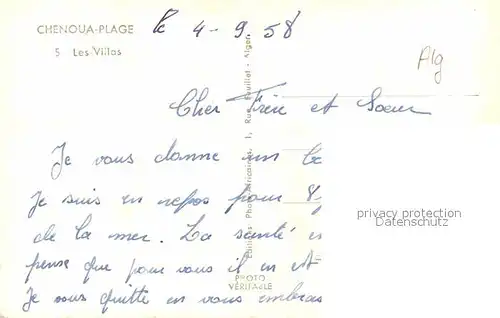 CHENOUA-PLAGE
5 Les Villas
le 4-9-58
Alg
Cher Frère et Soeur
Je vous donne un
Je suis en repos pour 8
de la mer. La santé
pense que pour vous il en est
Je vous quitte en vous embras
Editions Photo-Africaines, 1, Rue Feuillet - Alger
PHOTO
VÉRITABLE
privacy protection
Datenschutz